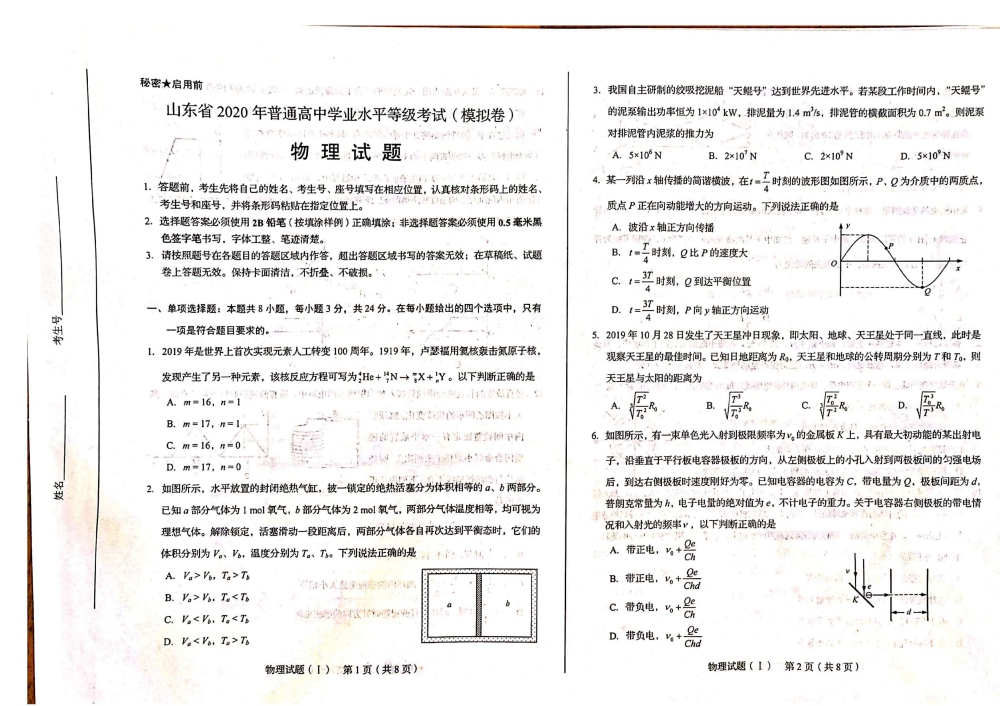 秘密★启用前
山东省 2020 年普通高中学业水平等级考试（模拟卷）
物 理 试 题
1. 答题前，考生先将自己的姓名、考生号、座号填写在相应位置，认真核对条形码上的姓名、
考生号和座号，并将条形码粘贴在指定位置上。
2. 选择题答案必须使用 2B 铅笔（按填涂样例）正确填涂；非选择题答案必须使用 0.5 毫米黑
色签字笔书写，字体工整、笔迹清楚。
3. 请按照题号在各题目的答题区域内作答，超出答题区域书写的答案无效；在草稿纸、试题
卷上答题无效。保持卡面清洁，不折叠、不破损。
一、单项选择题：本题共 8 小题，每小题 3 分，共 24 分。在每小题给出的四个选项中，只有
一项是符合题目要求的。
1. 2019 年是世界上首次实现元素人工转变 100 周年。1919 年，卢瑟福用氦核轰击氮原子核，
发现产生了另一种元素，该核反应方程可写为 ⁴₂He + ¹⁴₇N → ᵐ₈X + ¹ₙY 。以下判断正确的是
A. m = 16，n = 1
B. m = 17，n = 1
C. m = 16，n = 0
D. m = 17，n = 0
2. 如图所示，水平放置的封闭绝热气缸，被一锁定的绝热活塞分为体积相等的 a、b 两部分。
已知 a 部分气体为 1 mol 氧气，b 部分气体为 2 mol 氧气，两部分气体温度相等，均可视为
理想气体。解除锁定，活塞滑动一段距离后，两部分气体各自再次达到平衡态时，它们的
体积分别为 Va、Vb，温度分别为 Ta、Tb。下列说法正确的是
A. Va > Vb，Ta > Tb
B. Va > Vb，Ta < Tb
C. Va < Vb，Ta < Tb
D. Va < Vb，Ta > Tb
a
b
物理试题（Ⅰ） 第 1 页（共 8 页）
考生号
姓名
3. 我国自主研制的绞吸挖泥船 “天鲲号” 达到世界先进水平。若某段工作时间内，“天鲲号”
的泥泵输出功率恒为 1×10⁴ kW，排泥量为 1.4 m³/s，排泥管的横截面积为 0.7 m²。则泥泵
对排泥管内泥浆的推力为
A. 5×10⁶ N B. 2×10⁷ N C. 2×10⁹ N D. 5×10⁹ N
4. 某一列沿 x 轴传播的简谐横波，在 t = T/4 时刻的波形图如图所示，P、Q 为介质中的两质点，
质点 P 正在向动能增大的方向运动。下列说法正确的是
A. 波沿 x 轴正方向传播
B. t = T/4 时刻，Q 比 P 的速度大
C. t = 3T/4 时刻，Q 到达平衡位置
D. t = 3T/4 时刻，P 向 y 轴正方向运动
y
P
O
x
Q
5. 2019 年 10 月 28 日发生了天王星冲日现象，即太阳、地球、天王星处于同一直线，此时是
观察天王星的最佳时间。已知日地距离为 R₀，天王星和地球的公转周期分别为 T 和 T₀，则
天王星与太阳的距离为
A. ∛(T²/T₀²) R₀ B. √(T³/T₀³) R₀ C. ∛(T₀²/T²) R₀ D. √(T₀³/T³) R₀
6. 如图所示，有一束单色光入射到极限频率为 ν₀ 的金属板 K 上，具有最大初动能的某出射电
子，沿垂直于平行板电容器极板的方向，从左侧极板上的小孔入射到两极板间的匀强电场
后，到达右侧极板时速度刚好为零。已知电容器的电容为 C，带电量为 Q，极板间距为 d，
普朗克常量为 h，电子电量的绝对值为 e，不计电子的重力。关于电容器右侧极板的带电情
况和入射光的频率 ν ，以下判断正确的是
A. 带正电，ν₀ + Qe/Ch
B. 带正电，ν₀ + Qe/Chd
C. 带负电，ν₀ + Qe/Ch
D. 带负电，ν₀ + Qe/Chd
ν
e
K
d
物理试题（Ⅰ） 第 2 页（共 8 页）